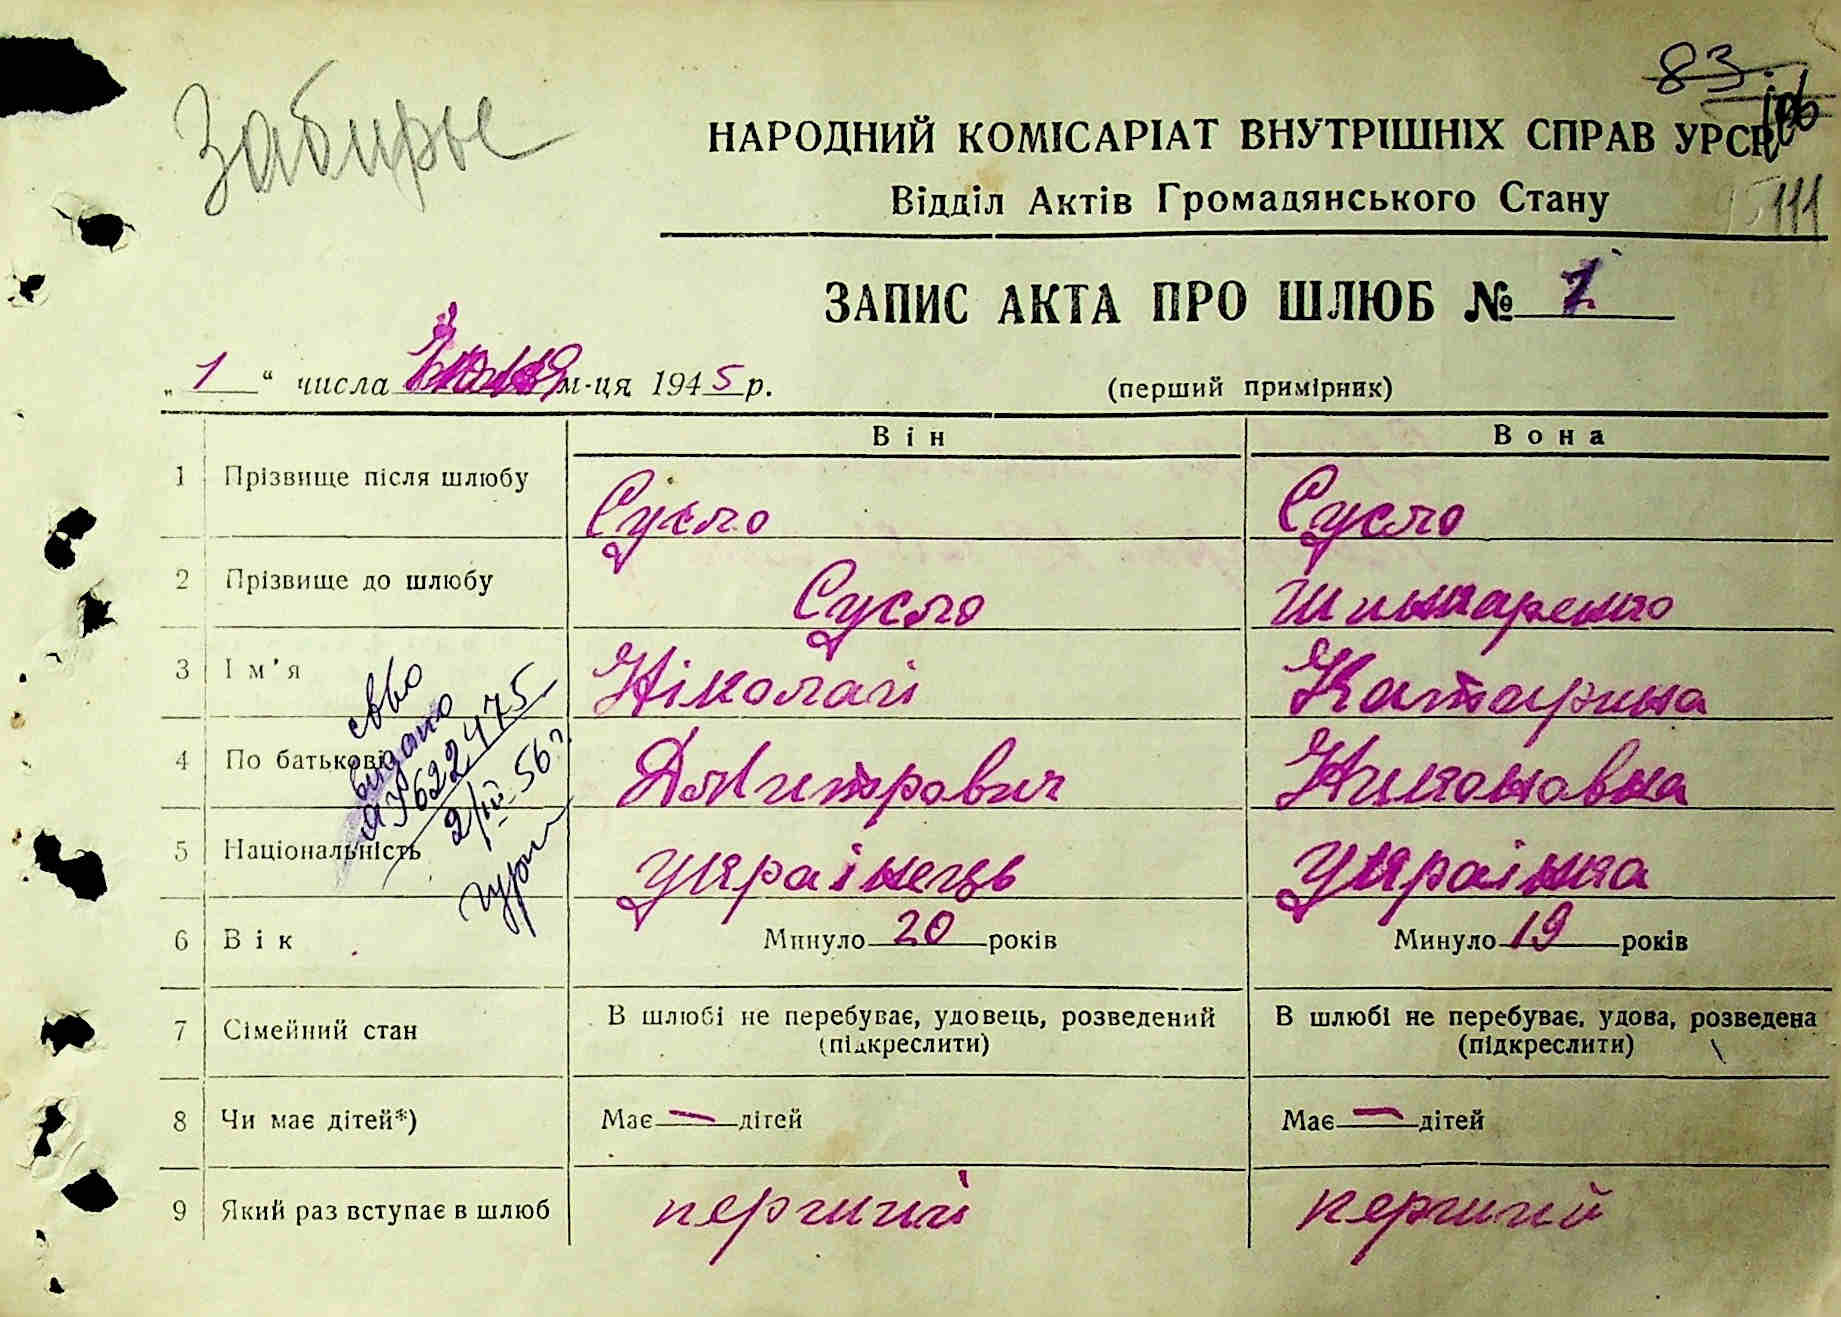 83
Забирье
НАРОДНИЙ КОМІСАРІАТ ВНУТРІШНІХ СПРАВ УРСР
Відділ Актів Громадянського Стану
111
ЗАПИС АКТА ПРО ШЛЮБ №
„ 1 “ числа м-ця 1945 р. (перший примірник)
Він Вона
1 Прізвище після шлюбу Сусло Сусло
2 Прізвище до шлюбу Сусло Шинкаренко
3 Ім'я Ніколай Катарина
4 По батькові Дмитрович Никоновна
5 Національність українець українка
св-во
видано
622475
2/IV-56 г.
6 Вік Минуло 20 років Минуло 19 років
7 Сімейний стан В шлюбі не перебуває, удовець, розведений (підкреслити) В шлюбі не перебуває, удова, розведена (підкреслити)
8 Чи має дітей*) Має — дітей Має — дітей
9 Який раз вступає в шлюб перший перший